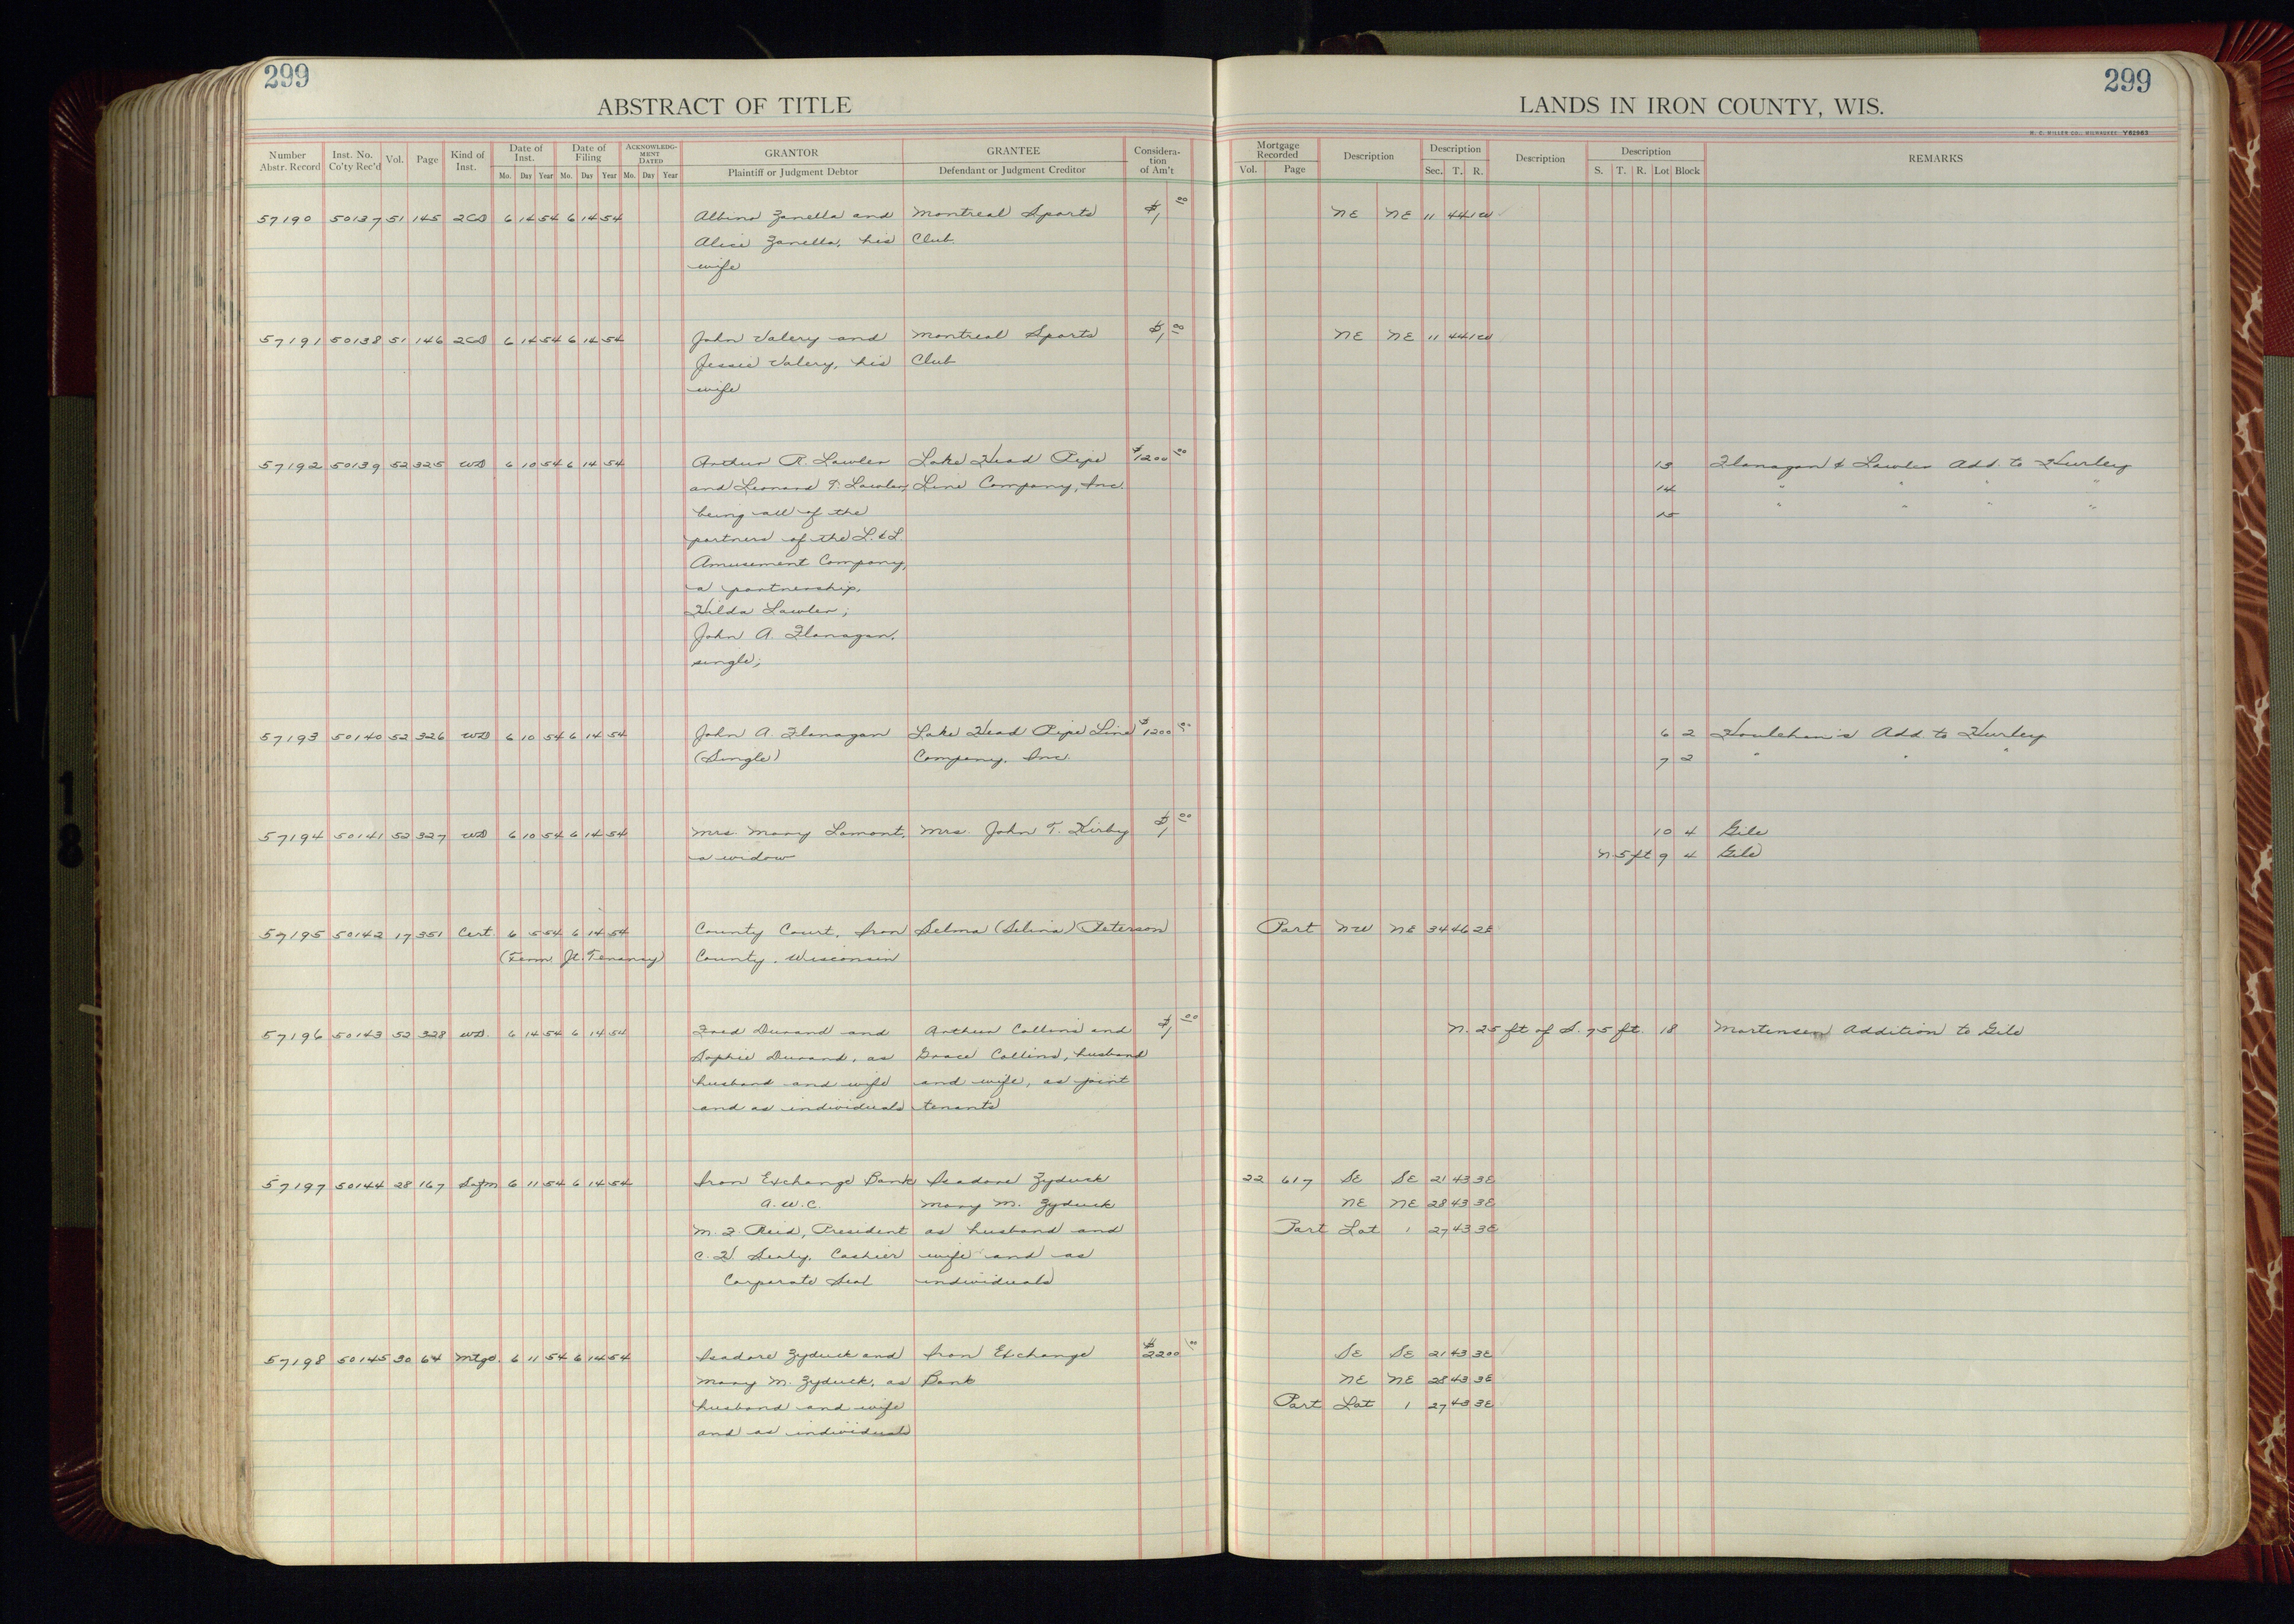 299
299
ABSTRACT OF TITLE
LANDS IN IRON COUNTY, WIS.
H. C. MILLER CO., MILWAUKEE Y82963
Number Abstr. Record | Inst. No. Co'ty Rec'd | Vol. | Page | Kind of Inst. | Date of Inst. Mo. Day Year | Date of Filing Mo. Day Year | ACKNOWLEDGMENT DATED Mo. Day Year | GRANTOR Plaintiff or Judgment Debtor | GRANTEE Defendant or Judgment Creditor | Consideration of Am't | Mortgage Recorded Vol. Page | Description | Description Sec. T. R. | Description | Description S. T. R. Lot Block | REMARKS
57190 50137 51 145 2CD 6 14 54 6 14 54 Albino Zanella and Montreal Sports $1 00 NE NE 11 44 1W
Alice Zanella, his Club
wife
57191 50138 51 146 2CD 6 14 54 6 14 54 John Valery and Montreal Sports $1 00 NE NE 11 44 1W
Jessie Valery, his Club
wife
57192 50139 52 325 WD 6 10 54 6 14 54 Arthur R. Lawler Lake Head Pipe $1200 00 13 Flanagan & Lawler Add. to Hurley
and Leonard T. Lawler, Line Company, Inc. 14 " " " "
being all of the 15 " " " "
partners of the L. & L.
Amusement Company,
a partnership,
Hilda Lawler;
John A. Flanagan,
single;
57193 50140 52 326 WD 6 10 54 6 14 54 John A. Flanagan Lake Head Pipe Line $1200 00 6 2 Houlehan's Add. to Hurley
(Single) Company, Inc. 7 2 " " "
57194 50141 52 327 WD 6 10 54 6 14 54 Mrs. Mary Lamont, Mrs. John T. Kirby $1 00 10 4 Gile
a widow N 5 ft 9 4 Gile
57195 50142 17 351 Cert. 6 5 54 6 14 54 County Court, Iron Selma (Selina) Peterson Part NW NE 34 46 2E
(Term Jt. Tenancy) County, Wisconsin
57196 50143 52 328 WD. 6 14 54 6 14 54 Fred Durand and Arthur Collins and $1 00 N. 25 ft of S. 75 ft. 18 Mortensen Addition to Gile
Sophie Durand, as Grace Collins, husband
husband and wife and wife, as joint
and as individuals tenants
57197 50144 28 167 Satfn 6 11 54 6 14 54 Iron Exchange Bank Isadore Zyduck 22 617 SE SE 21 43 3E
A.W.C. Mary M. Zyduck NE NE 28 43 3E
M. F. Reid, President as husband and Part Lot 1 27 43 3E
C. H. Sealy, Cashier wife and as
Corporate Seal individuals
57198 50145 30 64 Mtge. 6 11 54 6 14 54 Isadore Zyduck and Iron Exchange $2200 00 SE SE 21 43 3E
Mary M. Zyduck, as Bank NE NE 28 43 3E
husband and wife Part Lot 1 27 43 3E
and as individuals
18